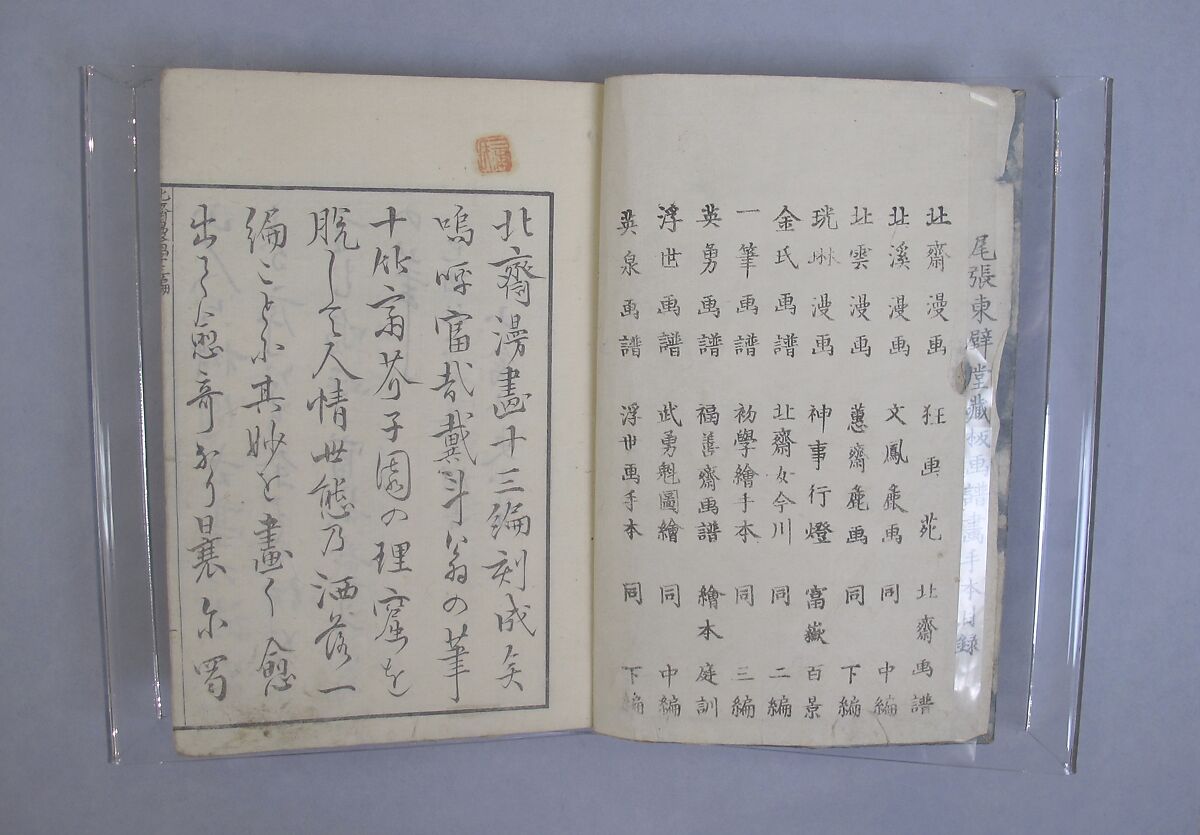 尾張東壁堂藏板画譜畫手本目録
北齋漫画 狂画苑 北齋画譜
北溪漫画 文鳳麁画 同中編
北雲漫画 蕙齋麁画 同下編
珖琳漫画 神事行燈 富嶽百景
金氏画譜 北齋女今川 同二編
一筆画譜 初學繪手本 同三編
英勇画譜 福善齋画譜 繪本庭訓
浮世画譜 武勇魁圖繪 同中編
英泉画譜 浮世画手本 同下編
北齋漫畫十三編刻成矣
嗚呼富哉戴斗翁の筆
十竹斎芥子園の理窟を
脱して人情世態乃洒落一
編ことに其妙を畫く愈
出て愈奇なり曩尓蜀